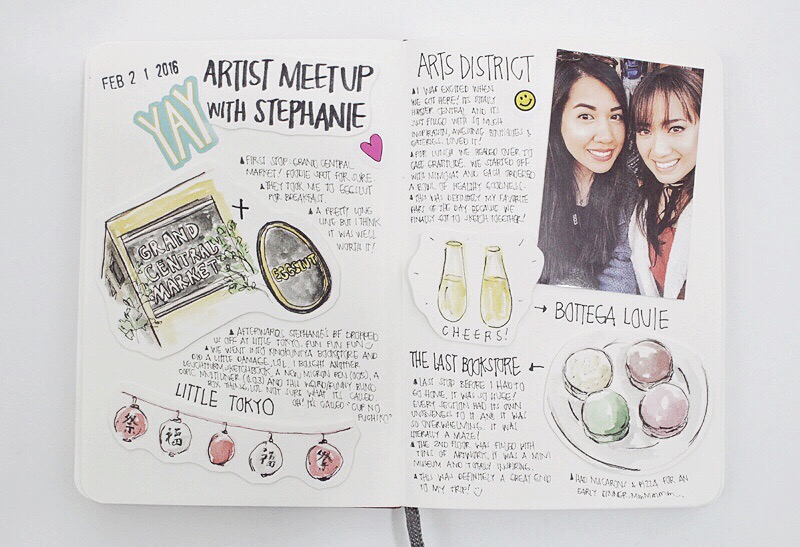 FEB 21 2016
YAY
ARTIST MEETUP
WITH STEPHANIE
▲FIRST STOP: GRAND CENTRAL
MARKET! FOODIE SPOT FOR SURE.
▲THEY TOOK ME TO EGGSLUT
FOR BREAKFAST.
▲A PRETTY LONG
LINE BUT I THINK
IT WAS WELL
WORTH IT!
+
GRAND
CENTRAL
MARKET
EGGSLUT
▲AFTERWARDS, STEPHANIE'S BF DROPPED
US OFF AT LITTLE TOKYO. FUN FUN FUN
▲WE WENT INTO KINOKUNIYA BOOKSTORE AND
DID A LITTLE DAMAGE, LOL. I BOUGHT ANOTHER
LEUCHTTURM SKETCHBOOK, A NEW MICRON PEN (005), A
COPIC MULTILINER (0.03) AND THIS WEIRD/FUNNY BLIND
BOX THING. LOL NOT SURE WHAT IT'S CALLED
OH! IT'S CALLED "CUP NO
FUCHICO"
LITTLE TOKYO
祭 福 福 祭
ARTS DISTRICT
▲I WAS EXCITED WHEN
WE GOT HERE! ITS TOTALLY
HIPSTER CENTRAL AND ITS
JUST FILLED WITH SO MUCH
INSPIRATION, AWESOME BOUTIQUES &
EATERIES. LOVED IT!
▲FOR LUNCH WE HEADED OVER TO
CAFE GRATITUDE. WE STARTED OFF
WITH MIMOSAS AND EACH ORDERED
A BOWL OF HEALTHY GOODNESS.
▲THIS WAS DEFINITELY MY FAVORITE
PART OF THE DAY BECAUSE WE
FINALLY GOT TO SKETCH TOGETHER!
CHEERS!
→ BOTTEGA LOUIE
THE LAST BOOKSTORE ←
▲LAST STOP BEFORE I HAD TO
GO HOME. IT WAS SO HUGE!
EVERY SECTION HAD ITS OWN
UNIQUENESS TO IT AND IT WAS
SO OVERWHELMING. IT WAS
LITERALLY A MAZE!
▲THE 2ND FLOOR WAS FILLED WITH
TONS OF ARTWORK. IT WAS A MINI
MUSEUM AND TOTALLY INSPIRING.
▲THIS WAS DEFINITELY A GREAT END
TO MY TRIP!
▲HAD MACARONS & PIZZA FOR AN
EARLY DINNER. MMMMMMM...